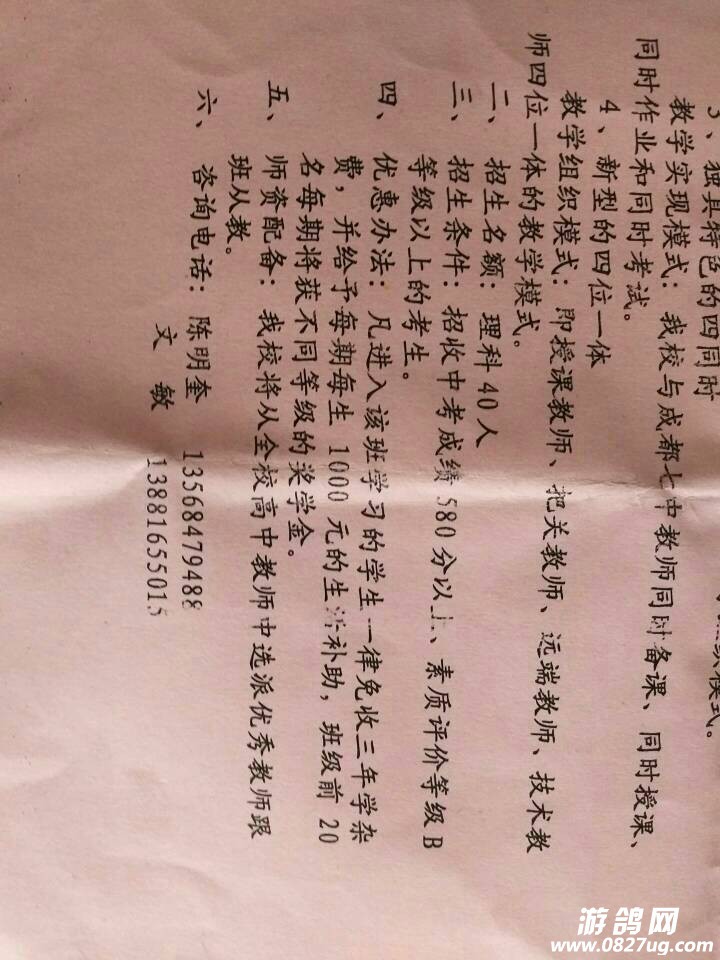 组织模式。
3、独具特色的四同时
教学实现模式：我校与成都七中教师同时备课、同时授课、
同时作业和同时考试。
4、新型的四位一体
教学组织模式：即授课教师、把关教师、远端教师、技术教
师四位一体的教学模式。
二、招生名额：理科40人
三、招生条件：招收中考成绩580分以上、素质评价等级B
等级以上的考生。
四、优惠办法：凡进入该班学习的学生一律免收三年学杂
费，并给予每期每生1000元的生活补助，班级前20
名每期将获不同等级的奖学金。
五、师资配备：我校将从全校高中教师中选派优秀教师跟
班从教。
六、咨询电话：陈明奎 13568479488
文 敏 13881655015
游鸽网
www.0827ug.com